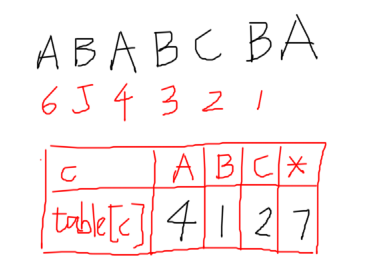 ABABCBA
6 5 4 3 2 1
c A B C *
table[c] 4 1 2 7